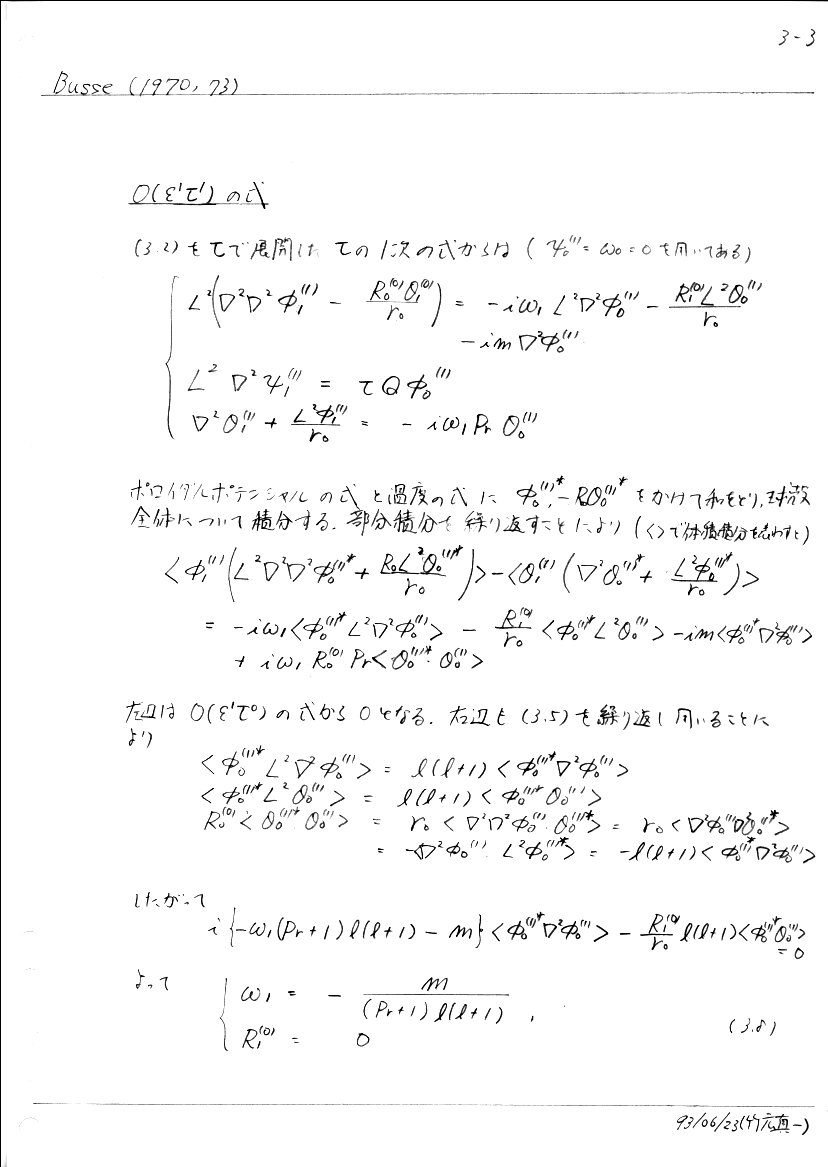 3-3
Busse (1970, 73)
O(ε¹τ¹) の式
(3.2) をτで展開した τの1次の式からは ( ψ₀⁽¹⁾ = ω₀ = 0 を用いてある)
L²(∇²∇²φ₁⁽¹⁾ - R₀⁽⁰⁾θ₁⁽¹⁾/r₀) = -iω₁ L²∇²φ₀⁽¹⁾ - R₁⁽⁰⁾L²θ₀⁽¹⁾/r₀
-im∇²φ₀⁽¹⁾
L² ∇²ψ₁⁽¹⁾ = τQφ₀⁽¹⁾
∇²θ₁⁽¹⁾ + L²φ₁⁽¹⁾/r₀ = -iω₁Pr θ₀⁽¹⁾
ポロイダルポテンシャルの式と温度の式に φ₀⁽¹⁾*, -R₀θ₀⁽¹⁾* をかけて和をとり,球殻
全体について積分する. 部分積分を繰り返すことにより (< >で体積積分を表わすと)
<φ₁⁽¹⁾(L²∇²∇²φ₀⁽¹⁾* + R₀L²θ₀⁽¹⁾*/r₀)> - <θ₁⁽¹⁾(∇²θ₀⁽¹⁾* + L²φ₀⁽¹⁾*/r₀)>
= -iω₁<φ₀⁽¹⁾*L²∇²φ₀⁽¹⁾> - R₁⁽⁰⁾/r₀ <φ₀⁽¹⁾*L²θ₀⁽¹⁾> -im<φ₀⁽¹⁾*∇²φ₀⁽¹⁾>
+ iω₁ R₀⁽⁰⁾ Pr<θ₀⁽¹⁾*·θ₀⁽¹⁾>
左辺は O(ε¹τ⁰) の式から 0 となる. 右辺も (3.5) を繰り返し用いることに
より
<φ₀⁽¹⁾* L²∇²φ₀⁽¹⁾> = l(l+1) <φ₀⁽¹⁾*∇²φ₀⁽¹⁾>
<φ₀⁽¹⁾*L²θ₀⁽¹⁾> = l(l+1) <φ₀⁽¹⁾*θ₀⁽¹⁾>
R₀⁽⁰⁾<θ₀⁽¹⁾*·θ₀⁽¹⁾> = r₀<∇²∇²φ₀⁽¹⁾·θ₀⁽¹⁾*> = r₀<∇²φ₀⁽¹⁾∇²θ₀⁽¹⁾*>
= -<∇²φ₀⁽¹⁾·L²φ₀⁽¹⁾*> = -l(l+1)<φ₀⁽¹⁾*∇²φ₀⁽¹⁾>
したがって
i{-ω₁(Pr+1)l(l+1) - m}<φ₀⁽¹⁾*∇²φ₀⁽¹⁾> - R₁⁽⁰⁾/r₀ l(l+1)<φ₀⁽¹⁾*θ₀⁽¹⁾>
= 0
よって
ω₁ = - m/((Pr+1)l(l+1)) ,
R₁⁽⁰⁾ = 0
(3.8)
93/06/23(竹広真一)